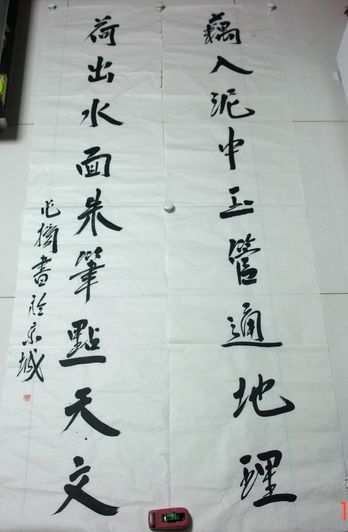 藕入泥中玉管通地理
荷出水面朱筆點天文
書於京城